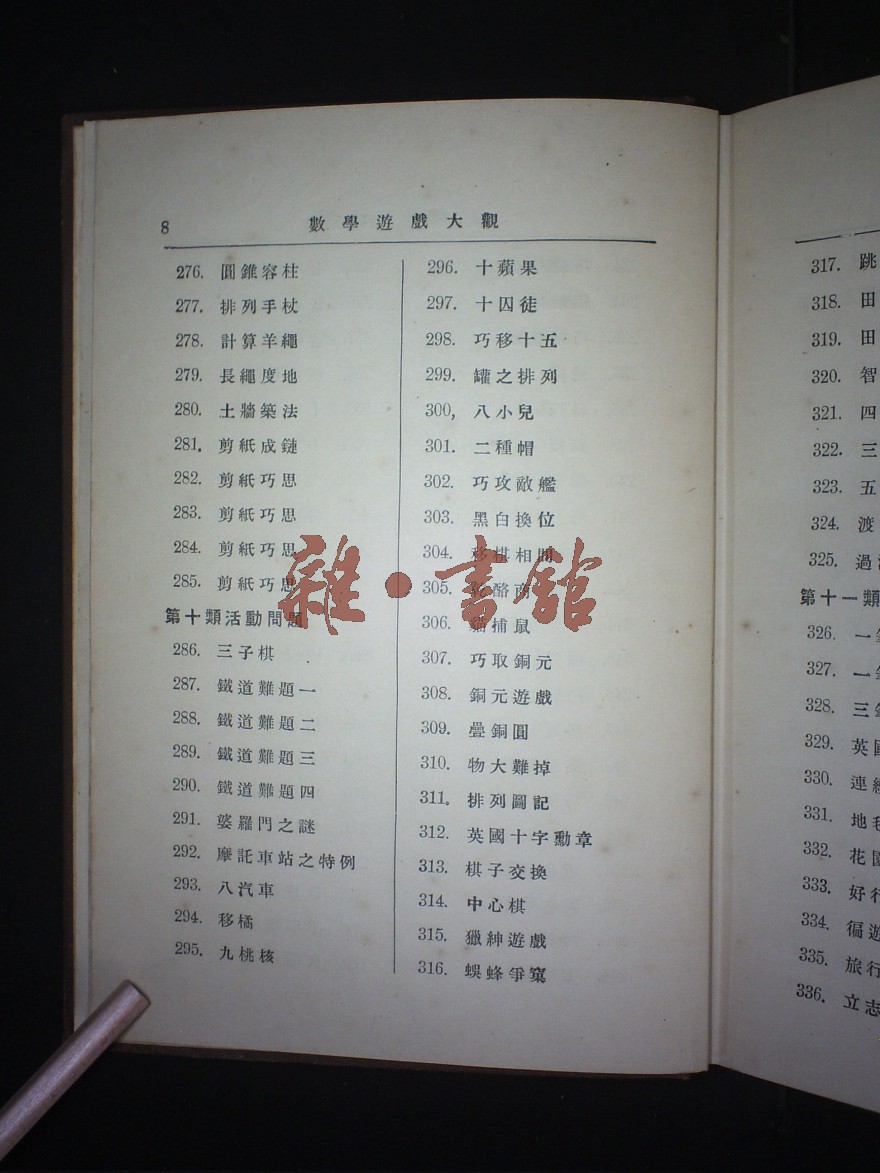 8 數學遊戲大觀
276. 圓錐容柱
277. 排列手杖
278. 計算羊繩
279. 長繩度地
280. 土牆築法
281. 剪紙成鏈
282. 剪紙巧思
283. 剪紙巧思
284. 剪紙巧思
285. 剪紙巧思
第十類活動問題
286. 三子棋
287. 鐵道難題一
288. 鐵道難題二
289. 鐵道難題三
290. 鐵道難題四
291. 婆羅門之謎
292. 摩託車站之特例
293. 八汽車
294. 移橘
295. 九桃核
296. 十蘋果
297. 十囚徒
298. 巧移十五
299. 罐之排列
300, 八小兒
301. 二種帽
302. 巧攻敵艦
303. 黑白換位
304. 移棋相間
305. 酪商
306. 貓捕鼠
307. 巧取銅元
308. 銅元遊戲
309. 疊銅圓
310. 物大難掉
311. 排列圖記
312. 英國十字勳章
313. 棋子交換
314. 中心棋
315. 獵紳遊戲
316. 蜈蜂爭窠
317. 跳
318. 田
319. 田
320. 智
321. 四
322. 三
323. 五
324. 渡
325. 過
第十一類
326. 一
327. 一
328. 三
329. 英
330. 連
331. 地
332. 花
333. 好行
334. 徧遊
335. 旅行
336. 立志
雜·書館